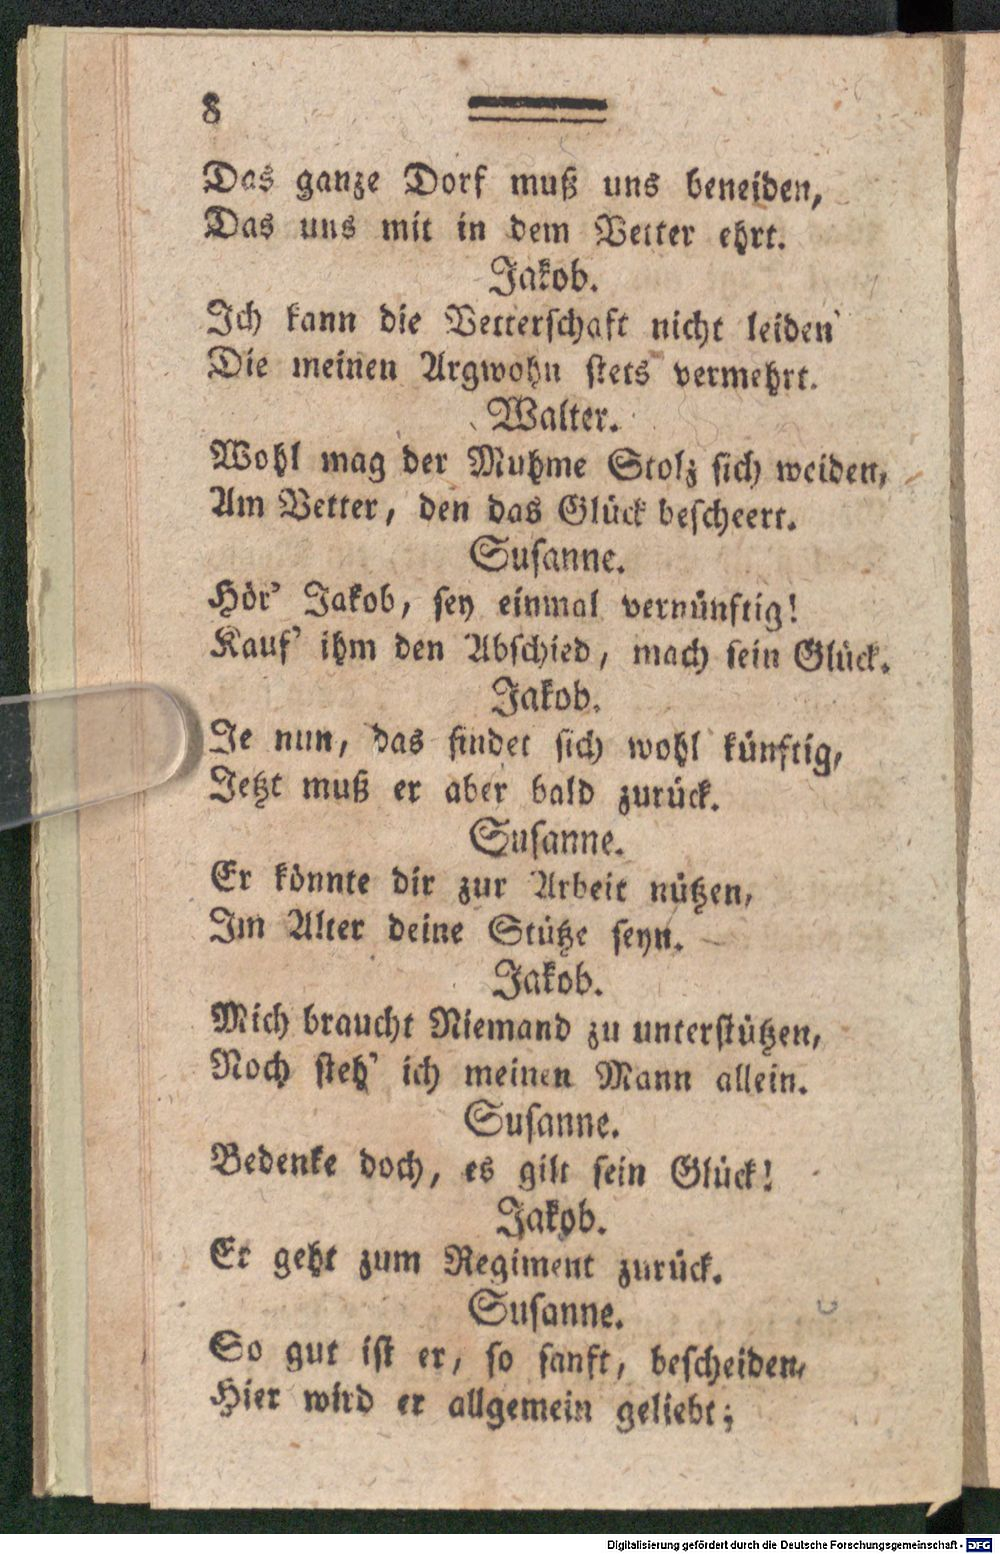 8
Das ganze Dorf muß uns beneiden,
Das uns mit in dem Vetter ehrt.
Jakob.
Ich kann die Vetterschaft nicht leiden
Die meinen Argwohn stets vermehrt.
Walter.
Wohl mag der Muhme Stolz sich weiden,
Am Vetter, den das Glück bescheert.
Susanne.
Hör' Jakob, sey einmal vernünftig!
Kauf' ihm den Abschied, mach sein Glück.
Jakob.
Je nun, das findet sich wohl künftig,
Jetzt muß er aber bald zurück.
Susanne.
Er könnte dir zur Arbeit nützen,
Im Alter deine Stütze seyn.
Jakob.
Mich braucht Niemand zu unterstützen,
Noch steh' ich meinen Mann allein.
Susanne.
Bedenke doch, es gilt sein Glück!
Jakob.
Er geht zum Regiment zurück.
Susanne.
So gut ist er, so sanft, bescheiden,
Hier wird er allgemein geliebt;
Digitalisierung gefördert durch die Deutsche Forschungsgemeinschaft - DFG